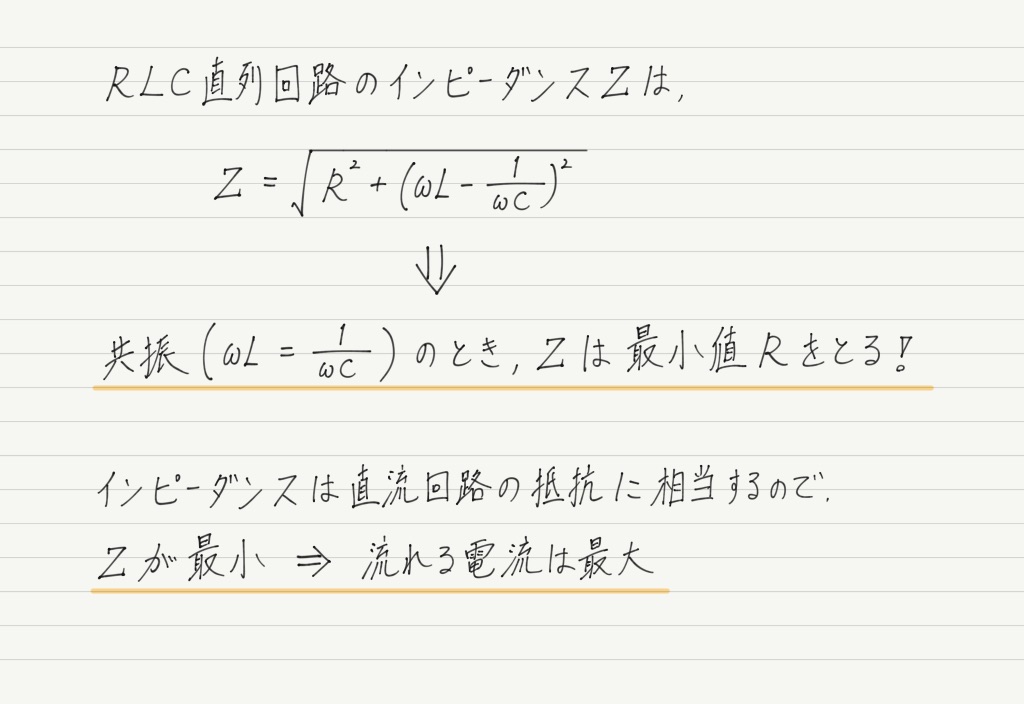 RLC直列回路のインピーダンスZは,
Z = √(R² + (ωL - 1/ωC)²)
⇓
共振(ωL = 1/ωC)のとき, Zは最小値Rをとる!
インピーダンスは直流回路の抵抗に相当するので,
Zが最小 ⇒ 流れる電流は最大